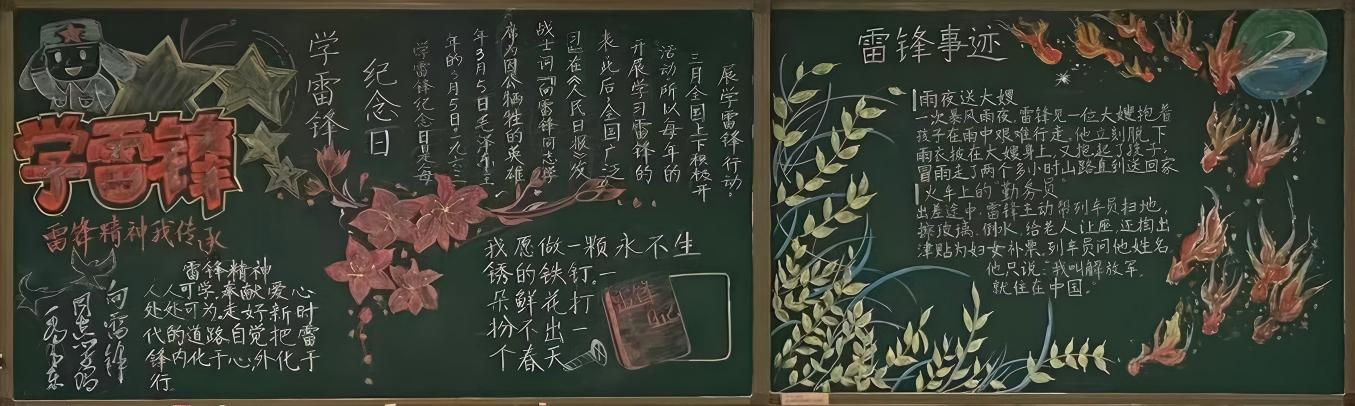 学雷锋
雷锋精神我传承
向雷锋
同志学习
毛泽东
雷锋精神
人人可学,奉献爱心
处处可为。走好新时
代的道路,自觉把雷
锋内化于心,外化于
行.
学雷锋
纪念日
学雷锋纪念日是每
年的3月5日。一九六三
年3月5日毛泽东主
席为因公牺牲的英雄
战士词「向雷锋同志学
习」在《人民日报》发
表此后,全国广泛
开展学习雷锋的
活动所以每年的
三月全国上下极极开
展学雷锋行动.
我愿做一颗永不生
锈的铁钉.一
朵鲜花打
扮不出一
个春天
雷锋
日记
雷锋事迹
雨夜送大嫂
一次暴风雨夜,雷锋见一位大嫂抱着
孩子在雨中艰难行走,他立刻脱下
雨衣披在大嫂身上,又抱起了孩子,
冒雨走了两个多小时山路直到送回家
火车上的"勤务员"
出差途中,雷锋主动帮列车员扫地,
擦玻璃,倒水,给老人让座,还掏出
津贴为妇女补票,列车员问他姓名
他只说:"我叫解放军,
就住在中国。"